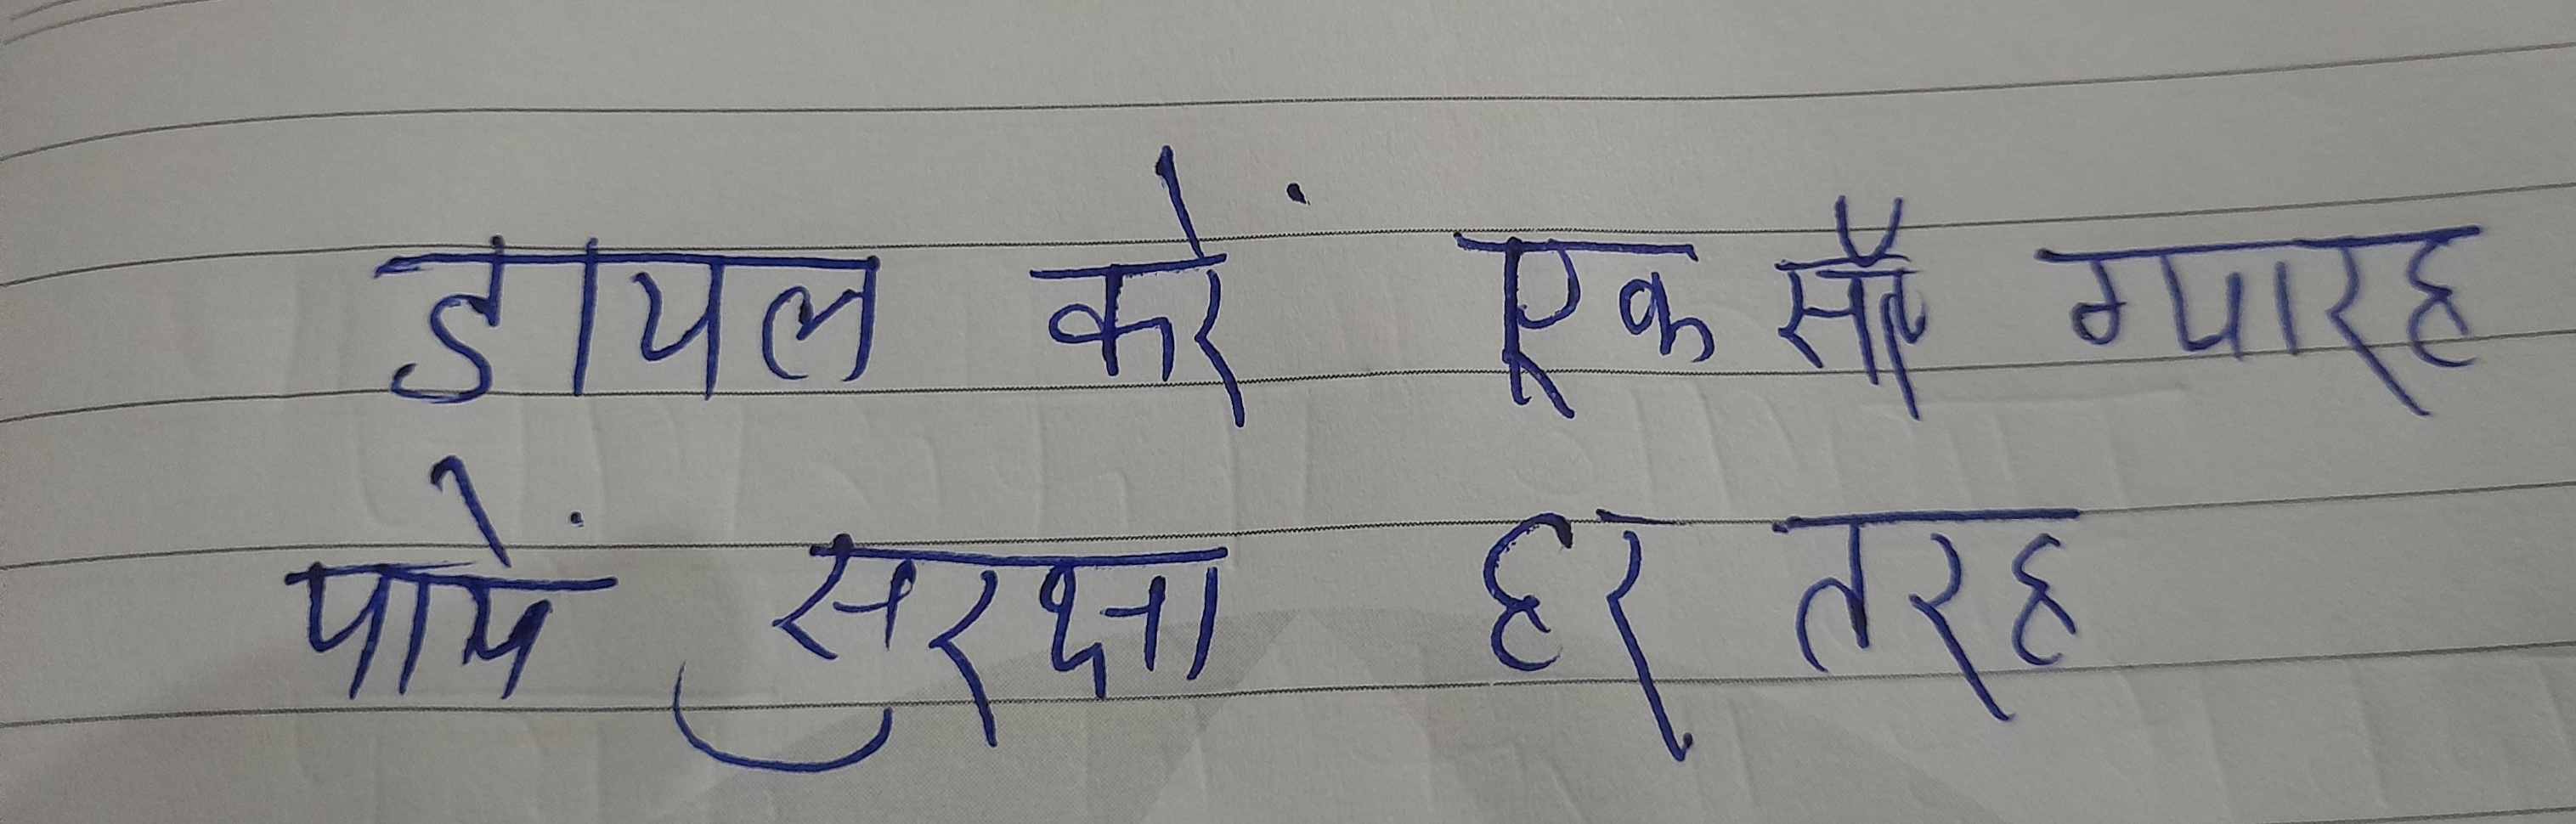 डायल करें एक सौ ग्यारह
पायें सुरक्षा हर तरह